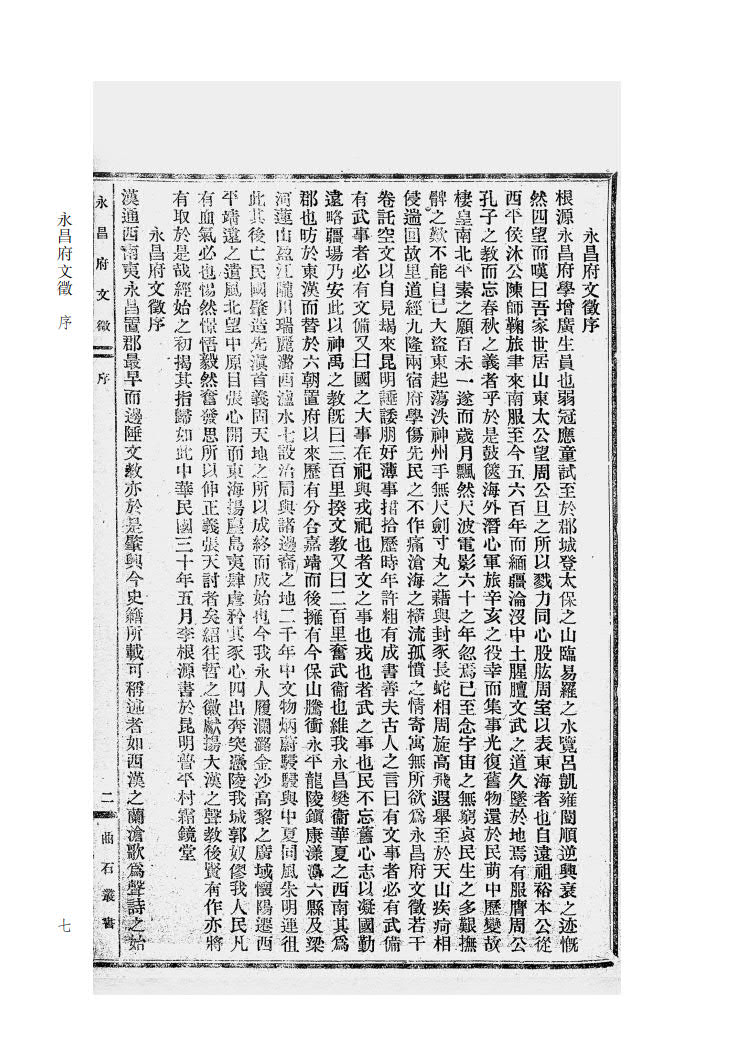 永昌府文徵序
根源永昌府學增廣生員也弱冠應童試至於郡城登太保之山臨易羅之水覽呂凱雍闓順逆興衰之迹慨
然四望而嘆曰吾家世居山東太公望周公旦之所以戮力同心股肱周室以表東海者也自遠祖裕本公從
西平侯沐公陳師鞠旅聿來南服至今五六百年而緬疆淪沒中土腥膻文武之道久墜於地焉有服膺周公
孔子之教而忘春秋之義者乎於是鼓篋海外潛心軍旅辛亥之役幸而集事光復舊物還於民萌中歷變故
棲皇南北平素之願百未一遂而歲月飄然尺波電影六十之年忽焉已至念宇宙之無窮哀民生之多艱撫
髀之歎不能自已大盜東起蕩泆神州手無尺劍寸丸之藉與封豕長蛇相周旋高飛遐舉至於天山疾疴相
侵遄回故里道經九隆兩宿府學傷先民之不作痛滄海之橫流孤憤之情寄寓無所欲爲永昌府文徵若干
卷託空文以自見朅來昆明諈諉朋好薄事捃拾歷時年許粗有成書善夫古人之言曰有文事者必有武備
有武事者必有文備又曰國之大事在祀與戎祀也者文之事也戎也者武之事也民不忘舊心志以凝國勤
遠略疆場乃安此以神禹之教旣曰三百里揆文教又曰二百里奮武衞也維我永昌樊衞華夏之西南其爲
郡也昉於東漢而替於六朝置府以來歷有分合嘉靖而後擁有今保山騰衝永平龍陵鎭康漾濞六縣及梁
河蓮山盈江隴川瑞麗潞西瀘水七設治局與諸邊裔之地二千年中文物炳蔚駸駸與中夏同風朱明運徂
此其後亡民國肇造先滇首義固天地之所以成終而成始也今我永人履瀾潞金沙高黎之廣域懷陽遷西
平靖遠之遺風北望中原目張心開而東海揚塵島夷肆虐矜其豕心四出奔突憑陵我城郭奴僇我人民凡
有血氣必也惕然憬悟毅然奮發思所以伸正義張天討者矣紹往哲之徽猷揚大漢之聲教後賢有作亦將
有取於是哉經始之初揭其指歸如此中華民國三十年五月李根源書於昆明普平村霜鏡堂
永昌府文徵序
漢通西南夷永昌置郡最早而邊陲文教亦於是肇興今史籍所載可稱述者如西漢之蘭滄歌爲聲詩之始
永昌府文徵 序 二 曲石叢書
永昌府文徵 序
七